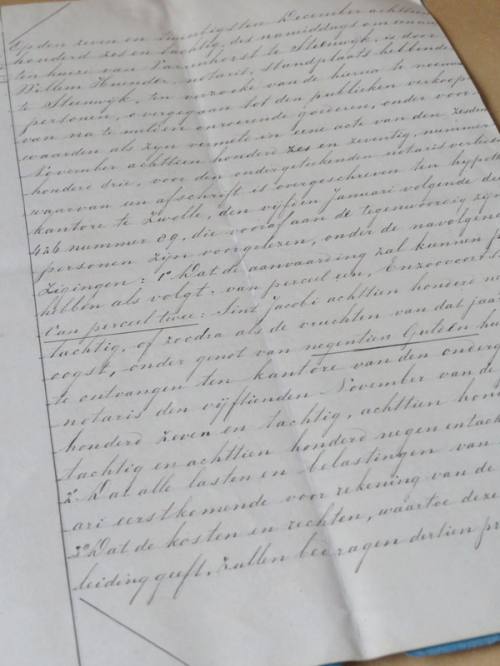 Op den zeven en twintigsten December achttien
honderd zes en tachtig, des namiddags om
ten huize van te Steenwijk, is door
Willem notaris, standplaats hebbende
te Steenwijk, ten verzoeke van de hierna te noemen
personen, overgegaan tot den publieken verkoop
van na te melden onroerende goederen, onder voor-
waarden als zijn vermeld in eene acte van den zesden
November achttien honderd zes en zeventig, nummer
honderd drie, voor den ondergeteekenden notaris verleden
waarvan een afschrift is overgeschreven ten hypot
kantore te Zwolle, den vijfden Januari volgende deel
426 nummer 89, die vooraf aan de tegenwoordig zijn
personen zijn voorgelezen, onder de navolgende
zigingen: 1o Dat de aanvaarding zal kunnen
hebben als volgt: van perceel een, Enzoovoorts
Van perceel twee: Sint Jacobi achttien honderd
tachtig, of zoodra als de vruchten van dat jaar
oogst, onder genot van negentien Gulden
te ontvangen ten kantore van den onderge
notaris den vijftienden November van de
honderd zeven en tachtig, achttien hond
tachtig en achttien honderd negen entach
2o Dat alle lasten en belastingen van
ari eerstkomende voor rekening van de
3o Dat de kosten en rechten, waartoe deze
leiding geeft, zullen bedragen dertien pr